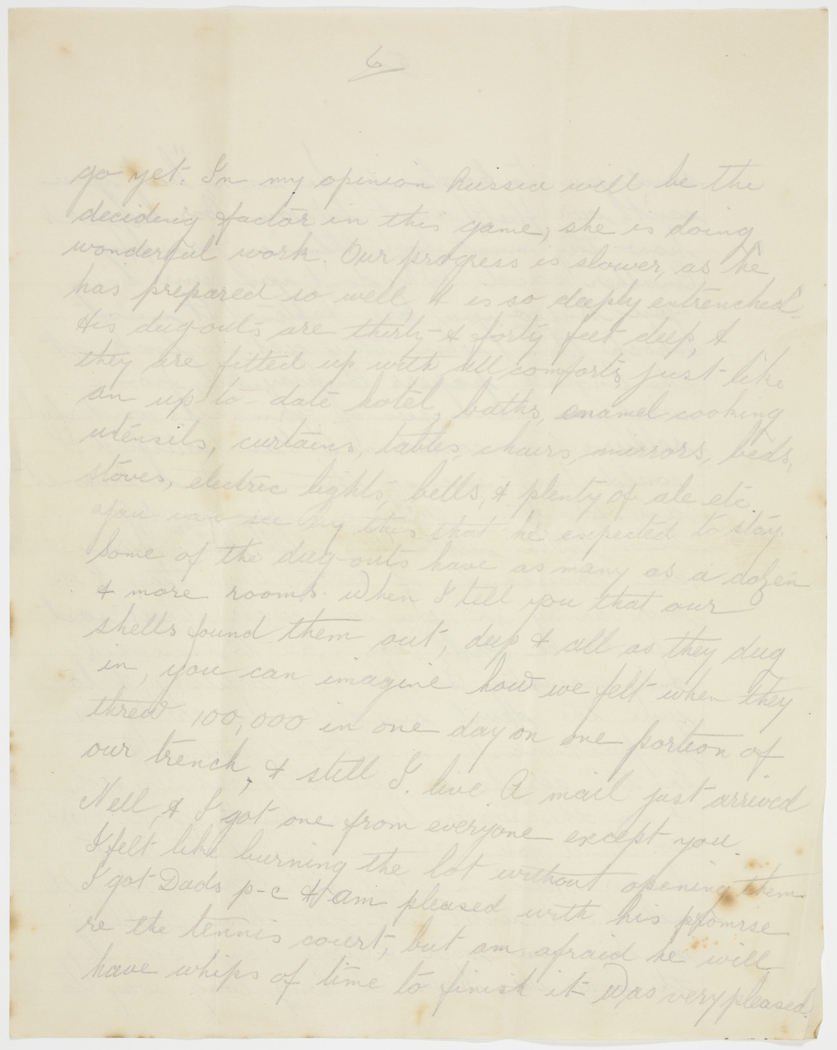 6
go yet. In my opinion Russia will be the
deciding factor in this game, she is doing
wonderful work. Our progress is slower, as he
has prepared so well, & is so deeply entrenched.
His dug-outs are thirty & forty feet deep, &
they are fitted up with all comforts, just like
an up-to-date hotel, baths, enamel cooking
utensils, curtains, tables, chairs, mirrors, beds,
stoves, electric lights, bells, & plenty of ale etc
you can see by this that he expected to stay.
Some of the dug-outs have as many as a dozen
& more rooms. When I tell you that our
shells found them out, deep & all as they dug
in, you can imagine how we felt when they
threw 100,000 in one day on one portion of
our trench, & still I live. A mail just arrived
Nell, & I got one from everyone except you.
I felt like burning the lot without opening them.
I got Dads p-c & am pleased with his promise
re the tennis court, but am afraid he will
have whips of time to finish it. Was very pleased